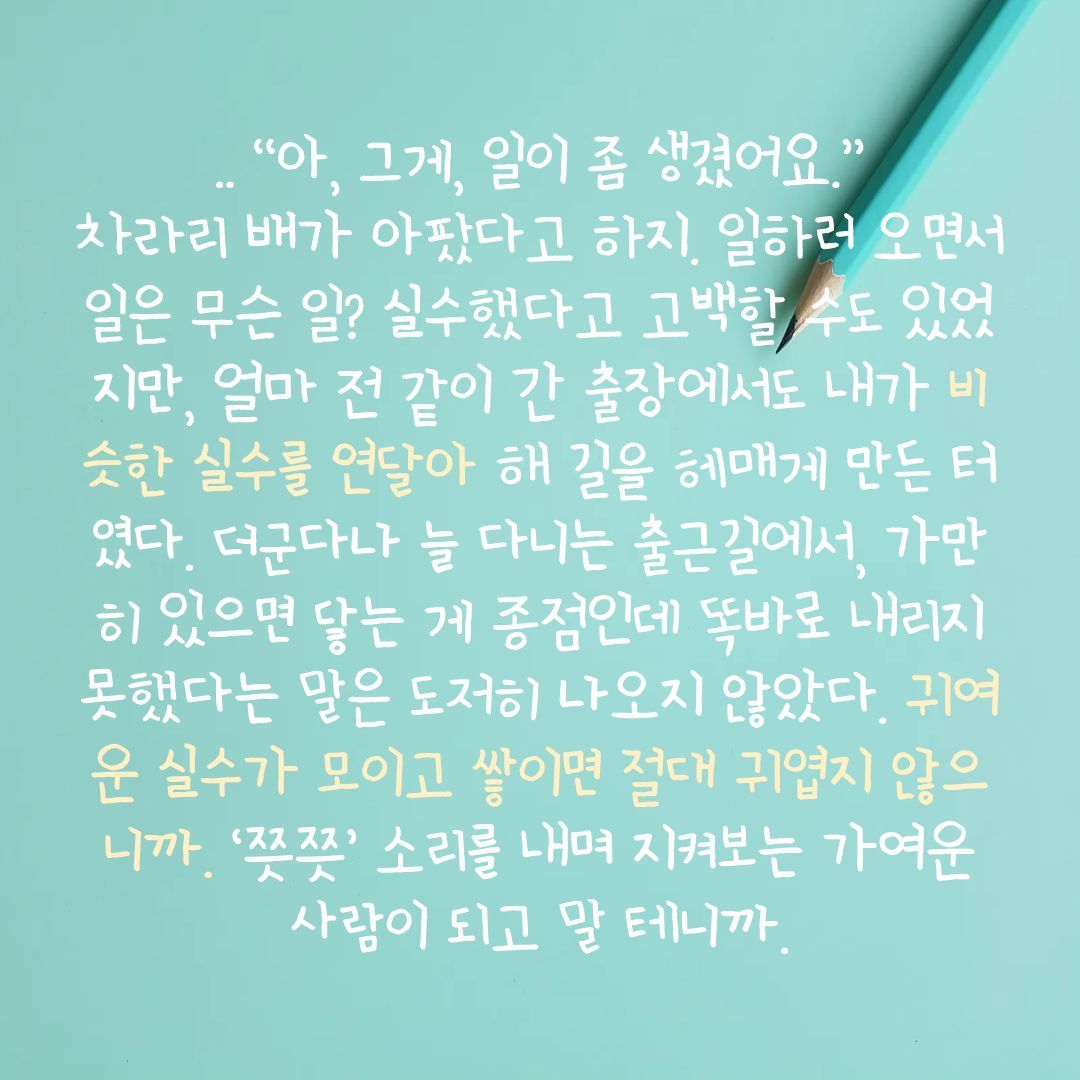 .. “아, 그게, 일이 좀 생겼어요.”
차라리 배가 아팠다고 하지. 일하러 오면서
일은 무슨 일? 실수했다고 고백할 수도 있었
지만, 얼마 전 같이 간 출장에서도 내가 비
슷한 실수를 연달아 해 길을 헤매게 만든 터
였다. 더군다나 늘 다니는 출근길에서, 가만
히 있으면 닿는 게 종점인데 똑바로 내리지
못했다는 말은 도저히 나오지 않았다. 귀여
운 실수가 모이고 쌓이면 절대 귀엽지 않으
니까. ‘쯧쯧’ 소리를 내며 지켜보는 가여운
사람이 되고 말 테니까.